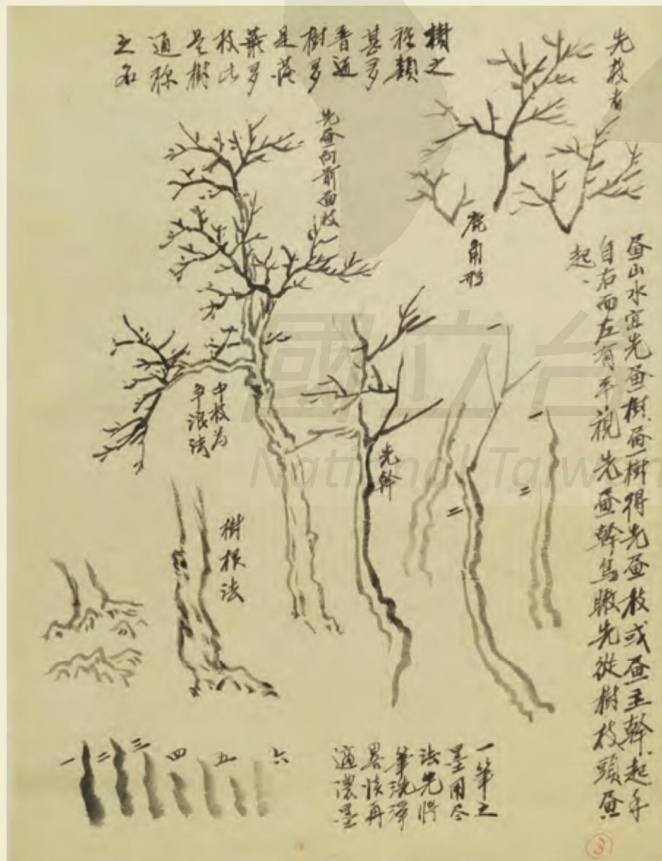 先教者
畫山水宜先畫樹、畫樹得先畫枝或畫主幹、起手
自右而左有平視先畫幹鳥瞰先從樹枝頭畫
起、
鹿角形
樹之
種類
甚多
普通
樹多
是落
葉多
枝此
是樹
通稱
之名
先畫向前面枝
中枝為
平浪法
先幹
一
二
二
樹根法
一
二
三
四
五
六
一筆之
墨用尽
法先將
筆洗淨
再
濃墨
③
國立台
National Taiwan